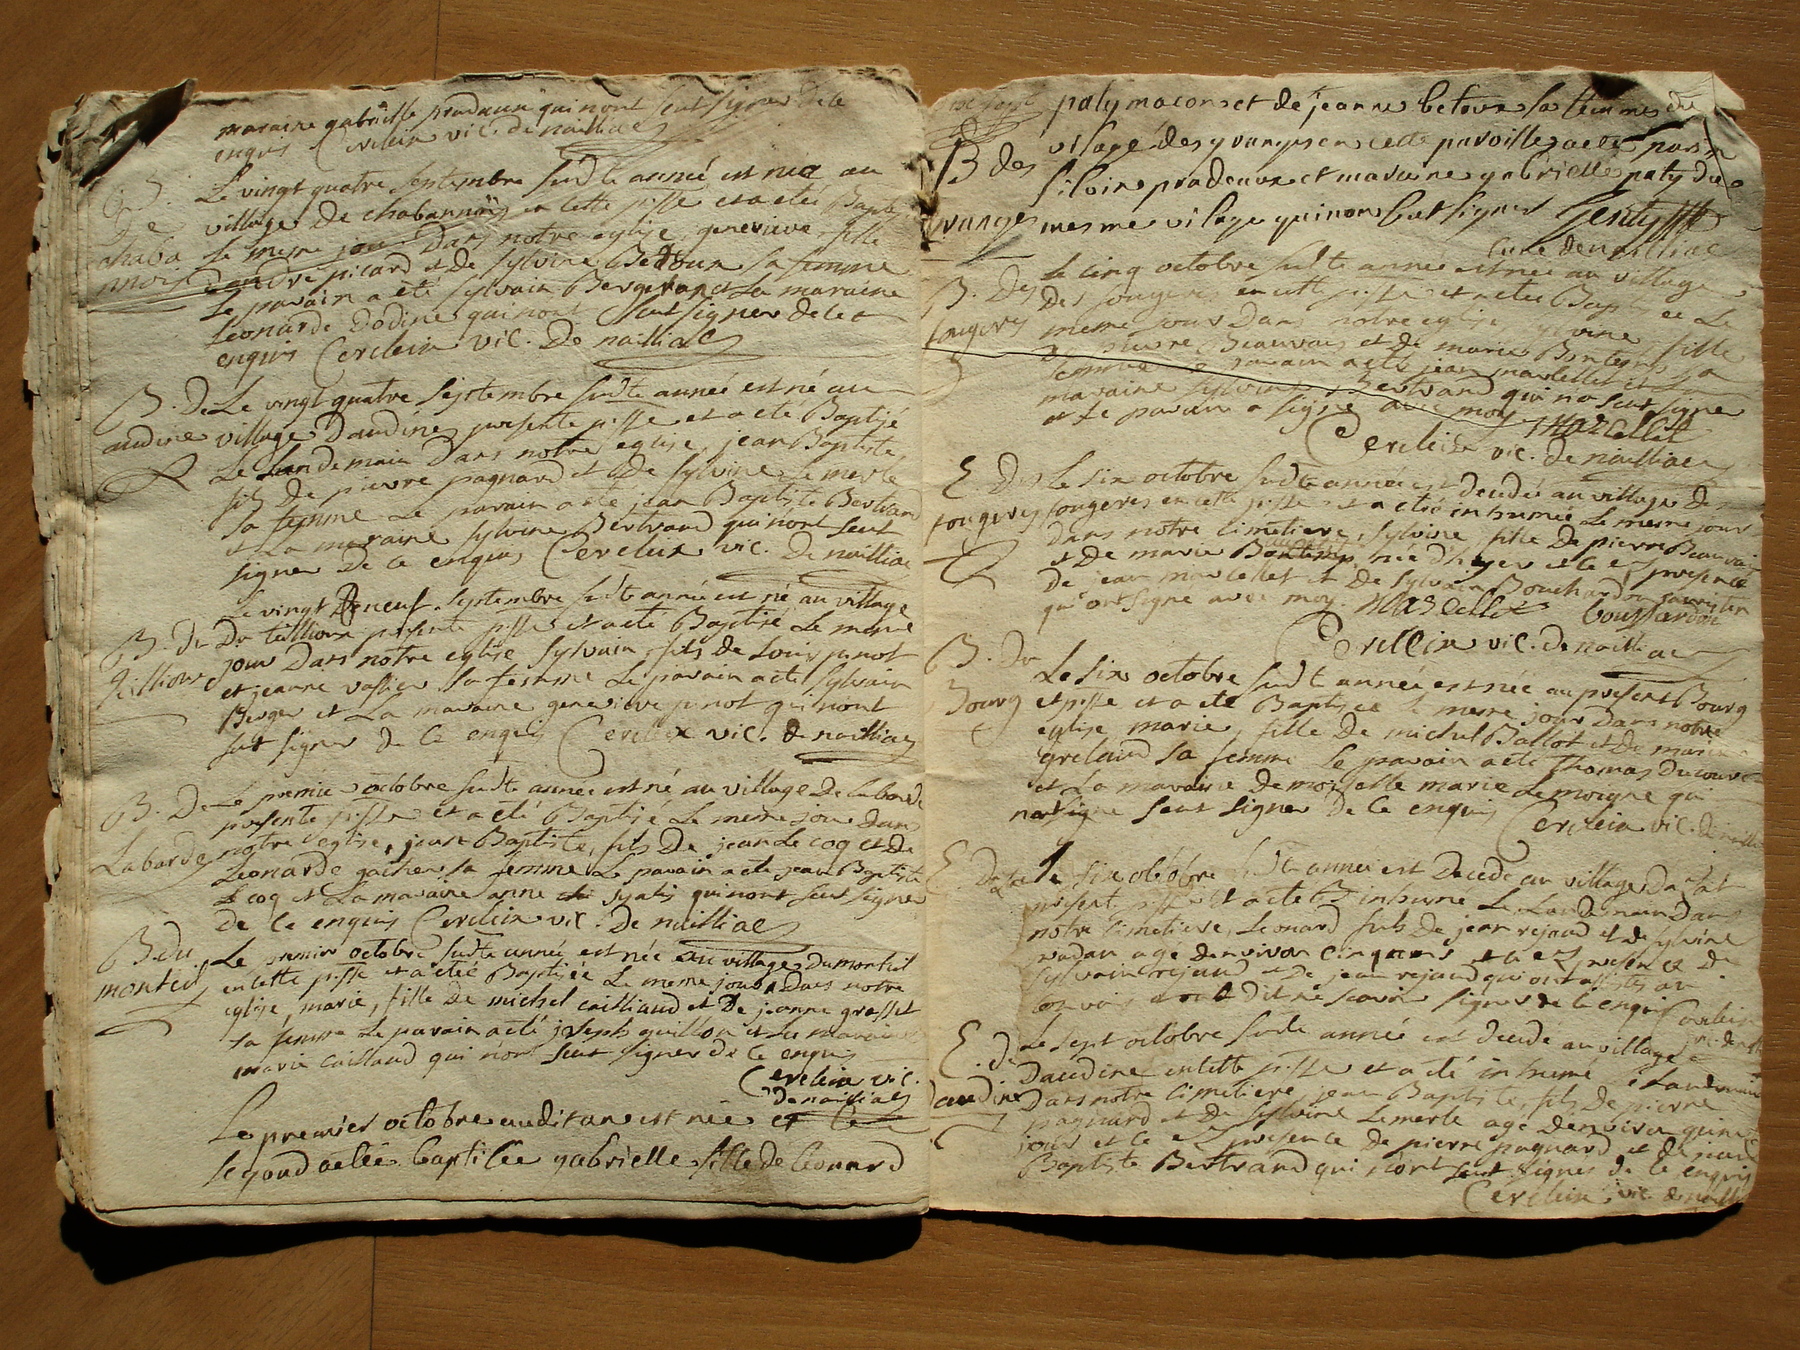 maraine gabrielle pradeaux qui nont scut signer de ce
enquis Cerclein vic. de nailliac
B.
De
chaba
nnois
Le vingt quatre septembre susdte année est née au
village De chabannois en cette pisse et a étée Baptisée
Le meme jour Dans notre eglise, genevieve, fille
Dandre picard et De sylvine Betoux sa femme
Le parain a eté sylvain Bergerand La maraine
Leonarde Dodine qui nont scut signer de ce
enquis Cerclein vic. De nailliac
B. De
audine
Le vingt quatre septembre susdte année est né au
village Daudine presente pisse et a eté Baptisé
Le Lendemain Dans notre eglise, jean Baptiste,
fils De pierre pagnard et De sylvine Lemerle
sa femme Le parain a eté jean Baptiste Bertrand
et La maraine sylvine Bertrand qui nont scut
signer De ce enquis Cerclein vic. De nailliac
B. Du
Tillioux
Le vingt Deneuf septembre susdte année est né au village
Du tillioux presente pisse et a eté Baptisé Le meme
jour Dans notre eglise sylvain, fils de Louis pinot
et jeanne vallier sa femme Le parain a eté sylvain
Berger et La maraine genevieve pinot qui nont
scut signer de Ce enquis Cerclein vic. de nailliac
B. De
Laborde
Le premie octobre susdte année est né au village De Laborde
presente pisse et a eté Baptisé Le meme jour Dans
notre eglise, jean Baptiste, fils De jean Le coq et De
Leonarde gacher sa femme Le parain a eté jean Baptiste
Le coq et La maraine anne syatis qui nont scut signer
De Ce enquis Cerclein vic. De nailliac
B. du
monteil
Le premier octobre susdte année est née au village Du monteil
en cette pisse et a étée Baptisée Le meme jour Dans notre
eglise, marie, fille De michel cailliaud et De jeanne grosset
sa femme Le parain a eté joseph guillon et La maraine
marie caillaud qui nont scut signer de Ce enquis
Cerclein vic.
de nailliac
Le premier octobre audit an est née et le
segond a etée baptisée gabrielle fille de Leonard
B des
granges
paty macon et de jeanne betoux sa femme du
vilage des grangesen cette paroisse a eté parin
silvin pradeaux et maraine gabrielle paty du
mesme vilage qui nont scut signer Genty
Curé de nailliac
B. Des
fougeres
Le cinq octobre susdte année est née au village
Des fougeres en cette pisse et a etée Baptisée Le
meme jour Dans notre eglise sylvine, fille
De pierre Beauvais et de marie Bontemps sa
femme Le parain a eté jean marcellet et La
maraine sylvine Bertrand qui na scut signer
et Le parain a signé avec moy Marcellet
Cerclein vic. de nailliac
E. Des
fougeres
Le six octobre susdte année est decedée au village De
fougeres en cette pisse et a etée inhumée Le meme jour
dans notre cimetiere, sylvine, fille De pierre Beauvais
et De marie Bontemps, née D'hyer et ce en presence
De jean marcellet et De sylvain Bouchardon
qui ont signé avec moy. Marcellet boussardon
Cerclein vic. de nailliac
B. Du
Bourg
Le six octobre susdte année est née au present Bourg
et pisse et a eté Baptisée Le meme jour Dans notre
eglise marie, fille De michel Ballot et De marie
grelaud sa femme Le parain a eté thomas Ducouret
et La maraine demoiselle marie Lemoigne qui
nont signe scut signer De Ce enquis Cerclein vic. de nailliac
E.
Le six octobre susdte année est Decedé au village
present pisse et a eté inhumé Le Landemain Dans
notre cimetiere, Leonard fils De jean rejaud et de sylvine
nadau agé denviron cinq ans et ce en presence De
sylvain rejaud et De jean rejaud qui ont assistés au
convois et ont Dit ne scavoir signer de Ce enquis Cerclein
vic. de
E. de
daudine
Le sept octobre susdte année est decedé au village
Daudine en cette pisse et a eté inhumé Le Landemain
Dans notre cimetiere jean Baptiste, fils De pierre
pagnard et De sylvine Lemerle agé Denviron quinze
jours et ce en presence De pierre pagnard et De jean
Baptiste Bertrand qui n'ont scut signer de Ce enquis
Cerclein vic. de nailliac